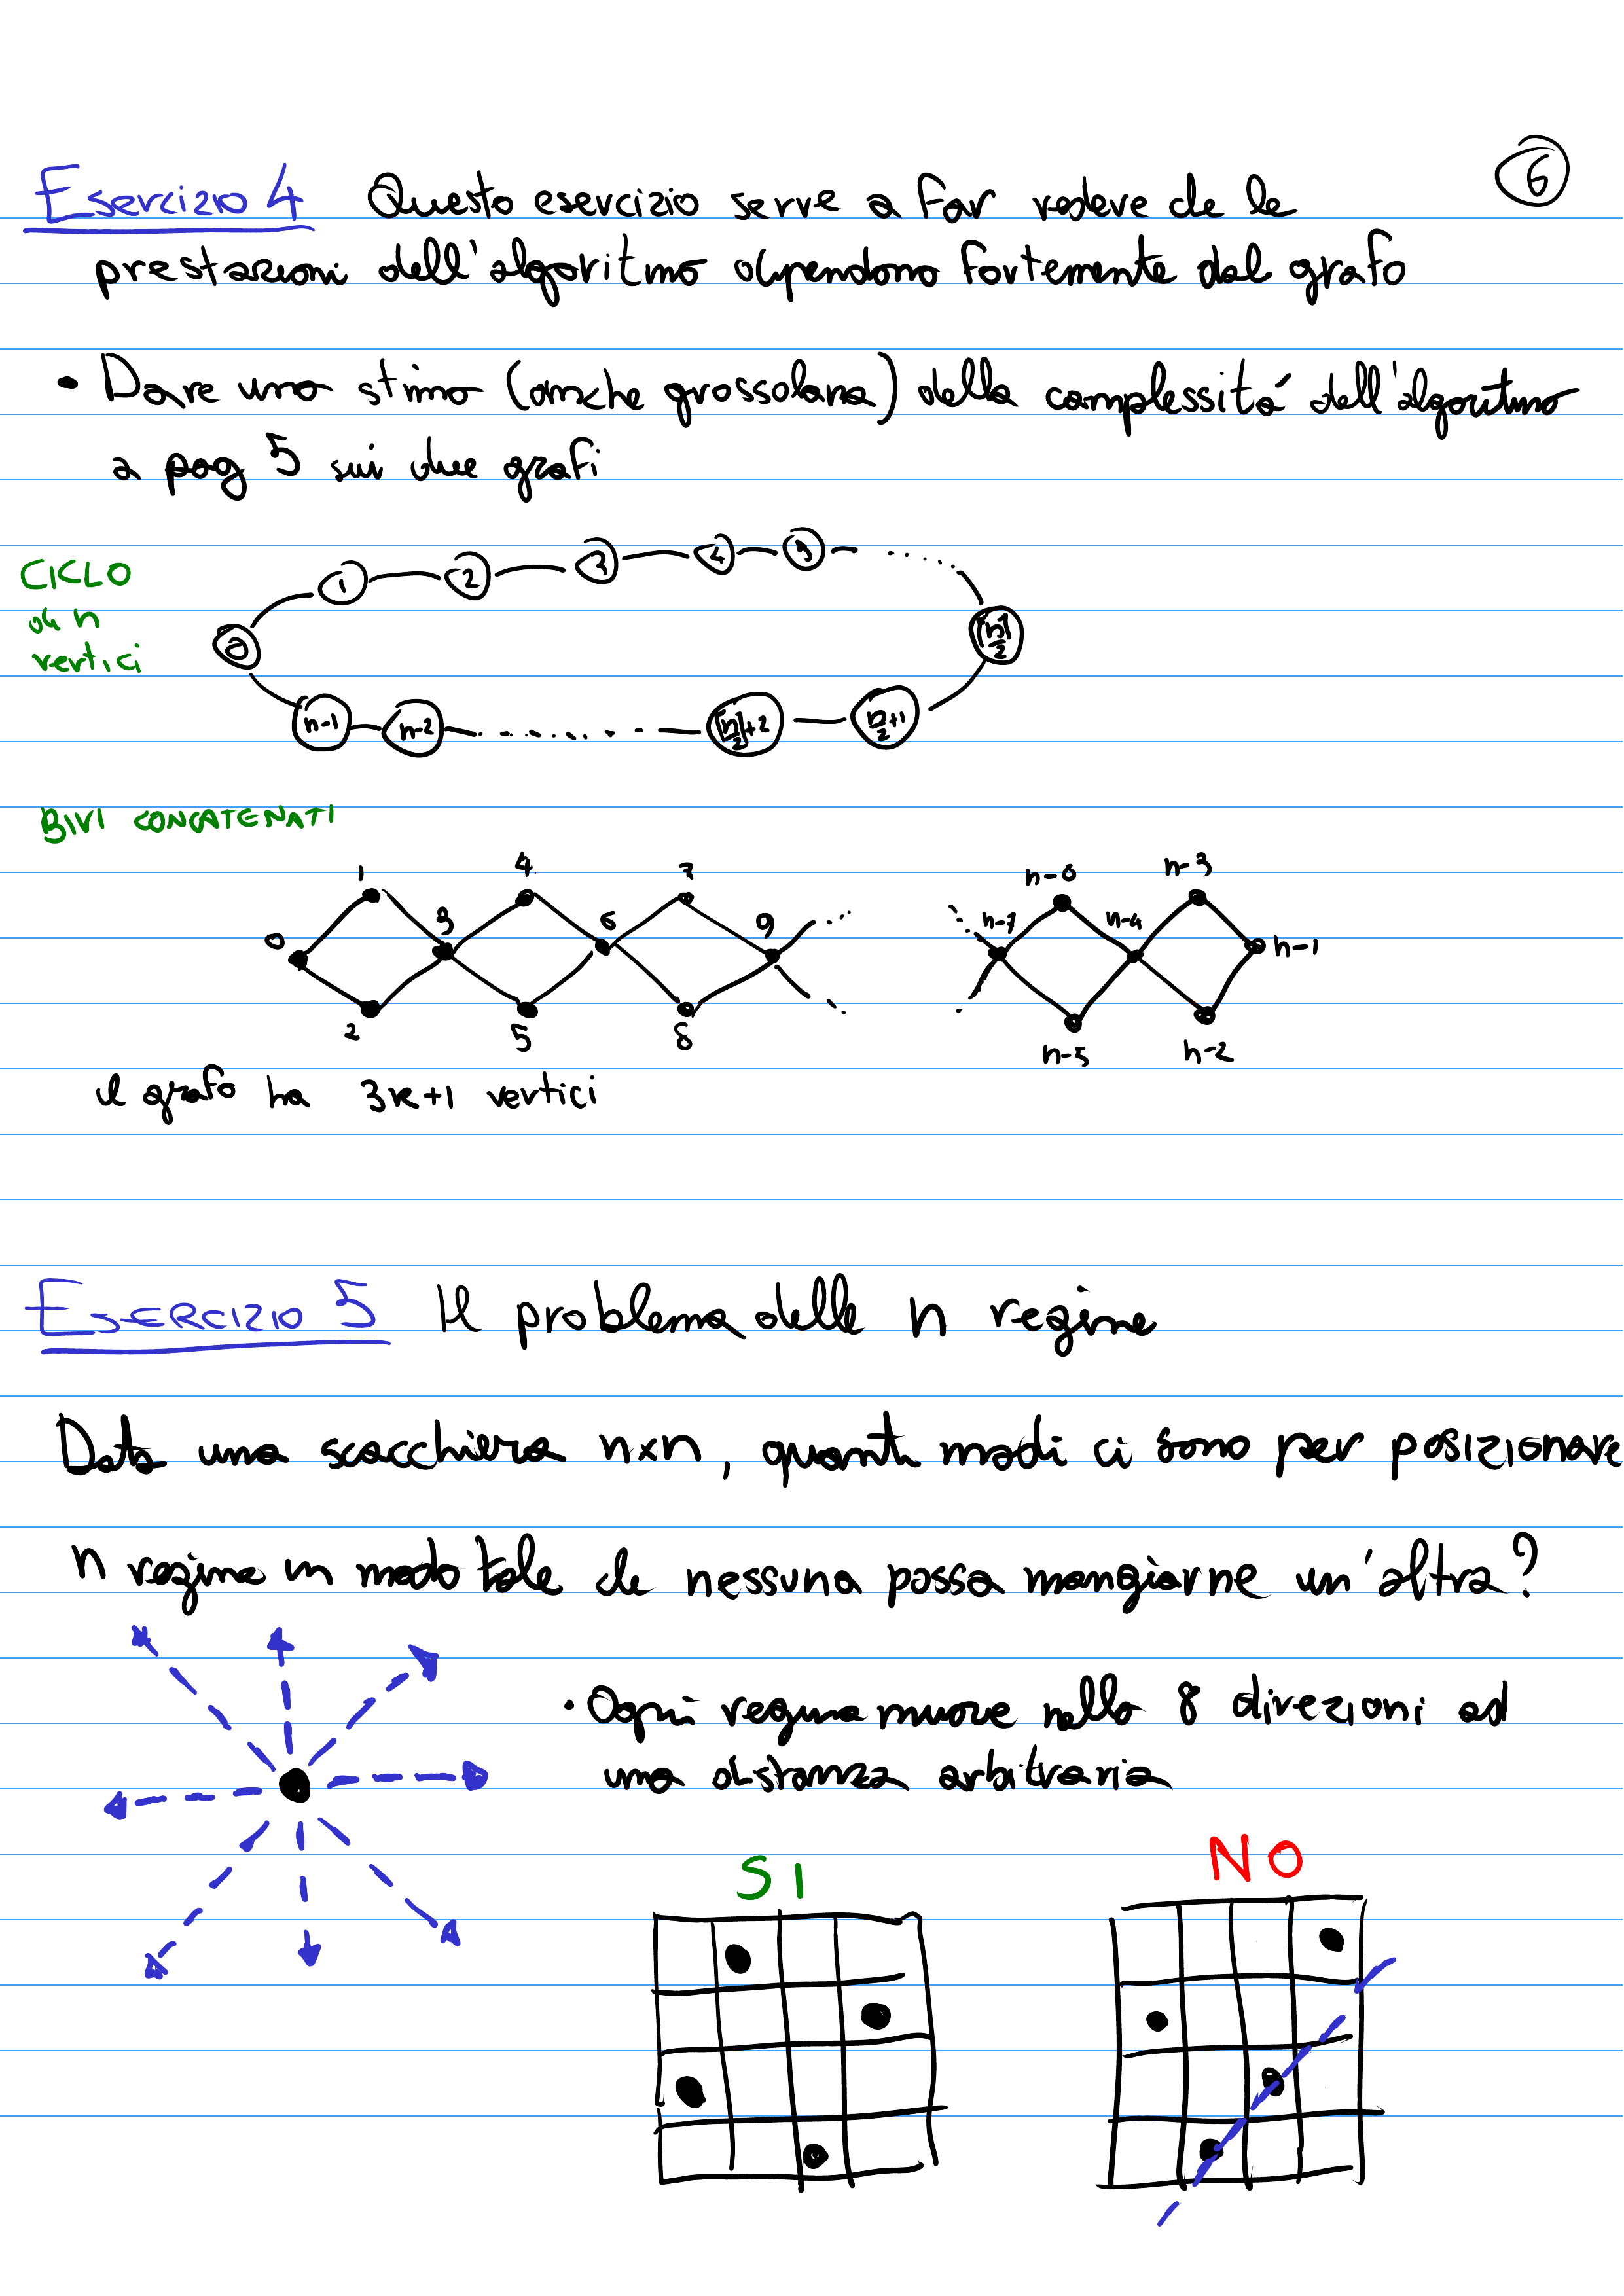 6
Esercizio 4 Questo esercizio serve a far vedere che le
prestazioni dell'algoritmo dipendono fortemente dal grafo
• Dare una stima (anche grossolana) della complessitá dell'algoritmo
a pag 5 sui due grafi
CICLO
di n
vertici
0 1 2 3 4 5
n-1 n-2
BIVI CONCATENATI
1 4 7 n-6 n-3
0 3 6 9 n-7 n-4 n-1
2 5 8 n-5 n-2
il grafo ha 3k+1 vertici
ESERCIZIO 5 Il problema delle n regine
Data una scacchiera n×n, quanti modi ci sono per posizionare
n regine in modo tale che nessuna possa mangiarne un'altra?
• Ogni regina muove nelle 8 direzioni ad
una distanza arbitraria
SI NO